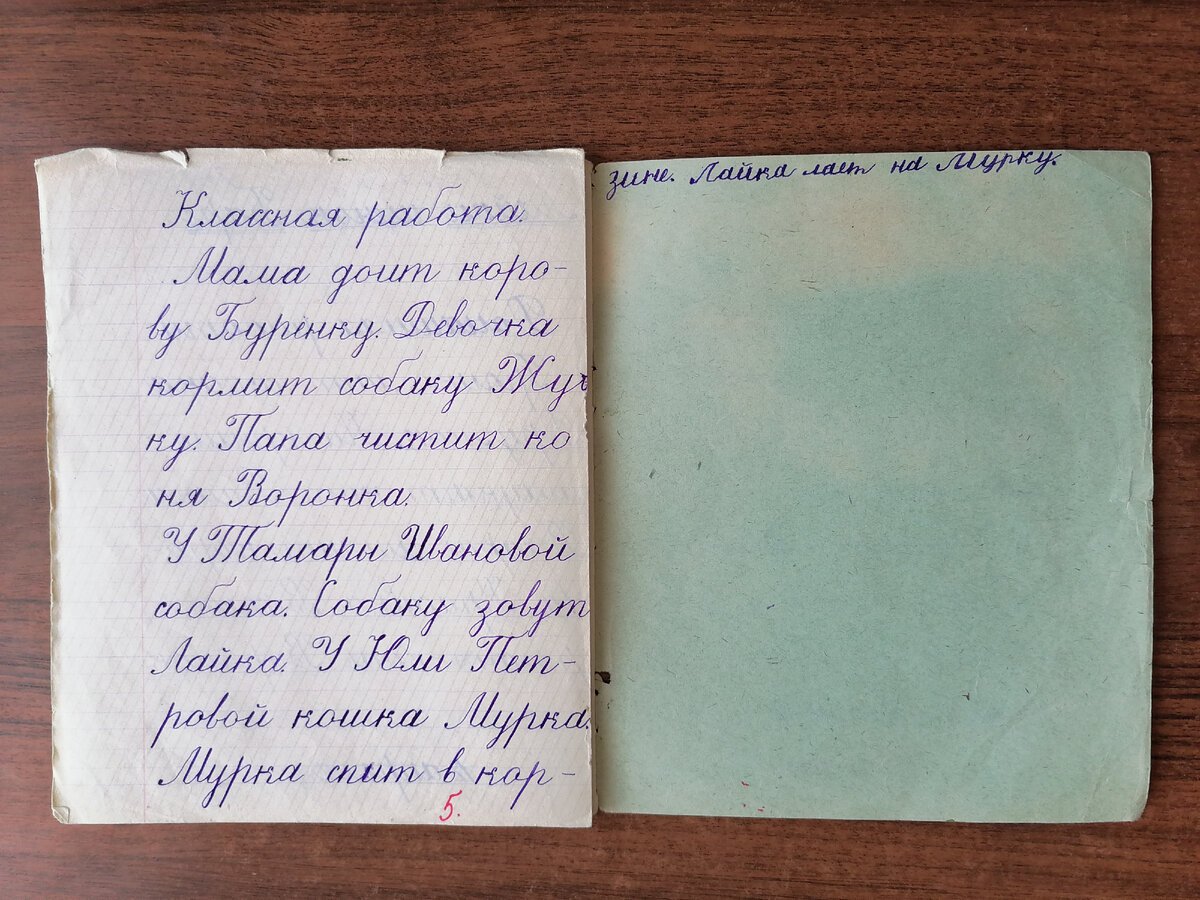 Классная работа.
Мама доит коро-
ву Буренку. Девочка
кормит собаку Жуч
ку. Папа чистит ко
ня Воронка.
У Тамары Ивановой
собака. Собаку зовут
Лайка. У Юли Пет-
ровой кошка Мурка.
Мурка спит в кор-
5.
зине. Лайка лает на Мурку.